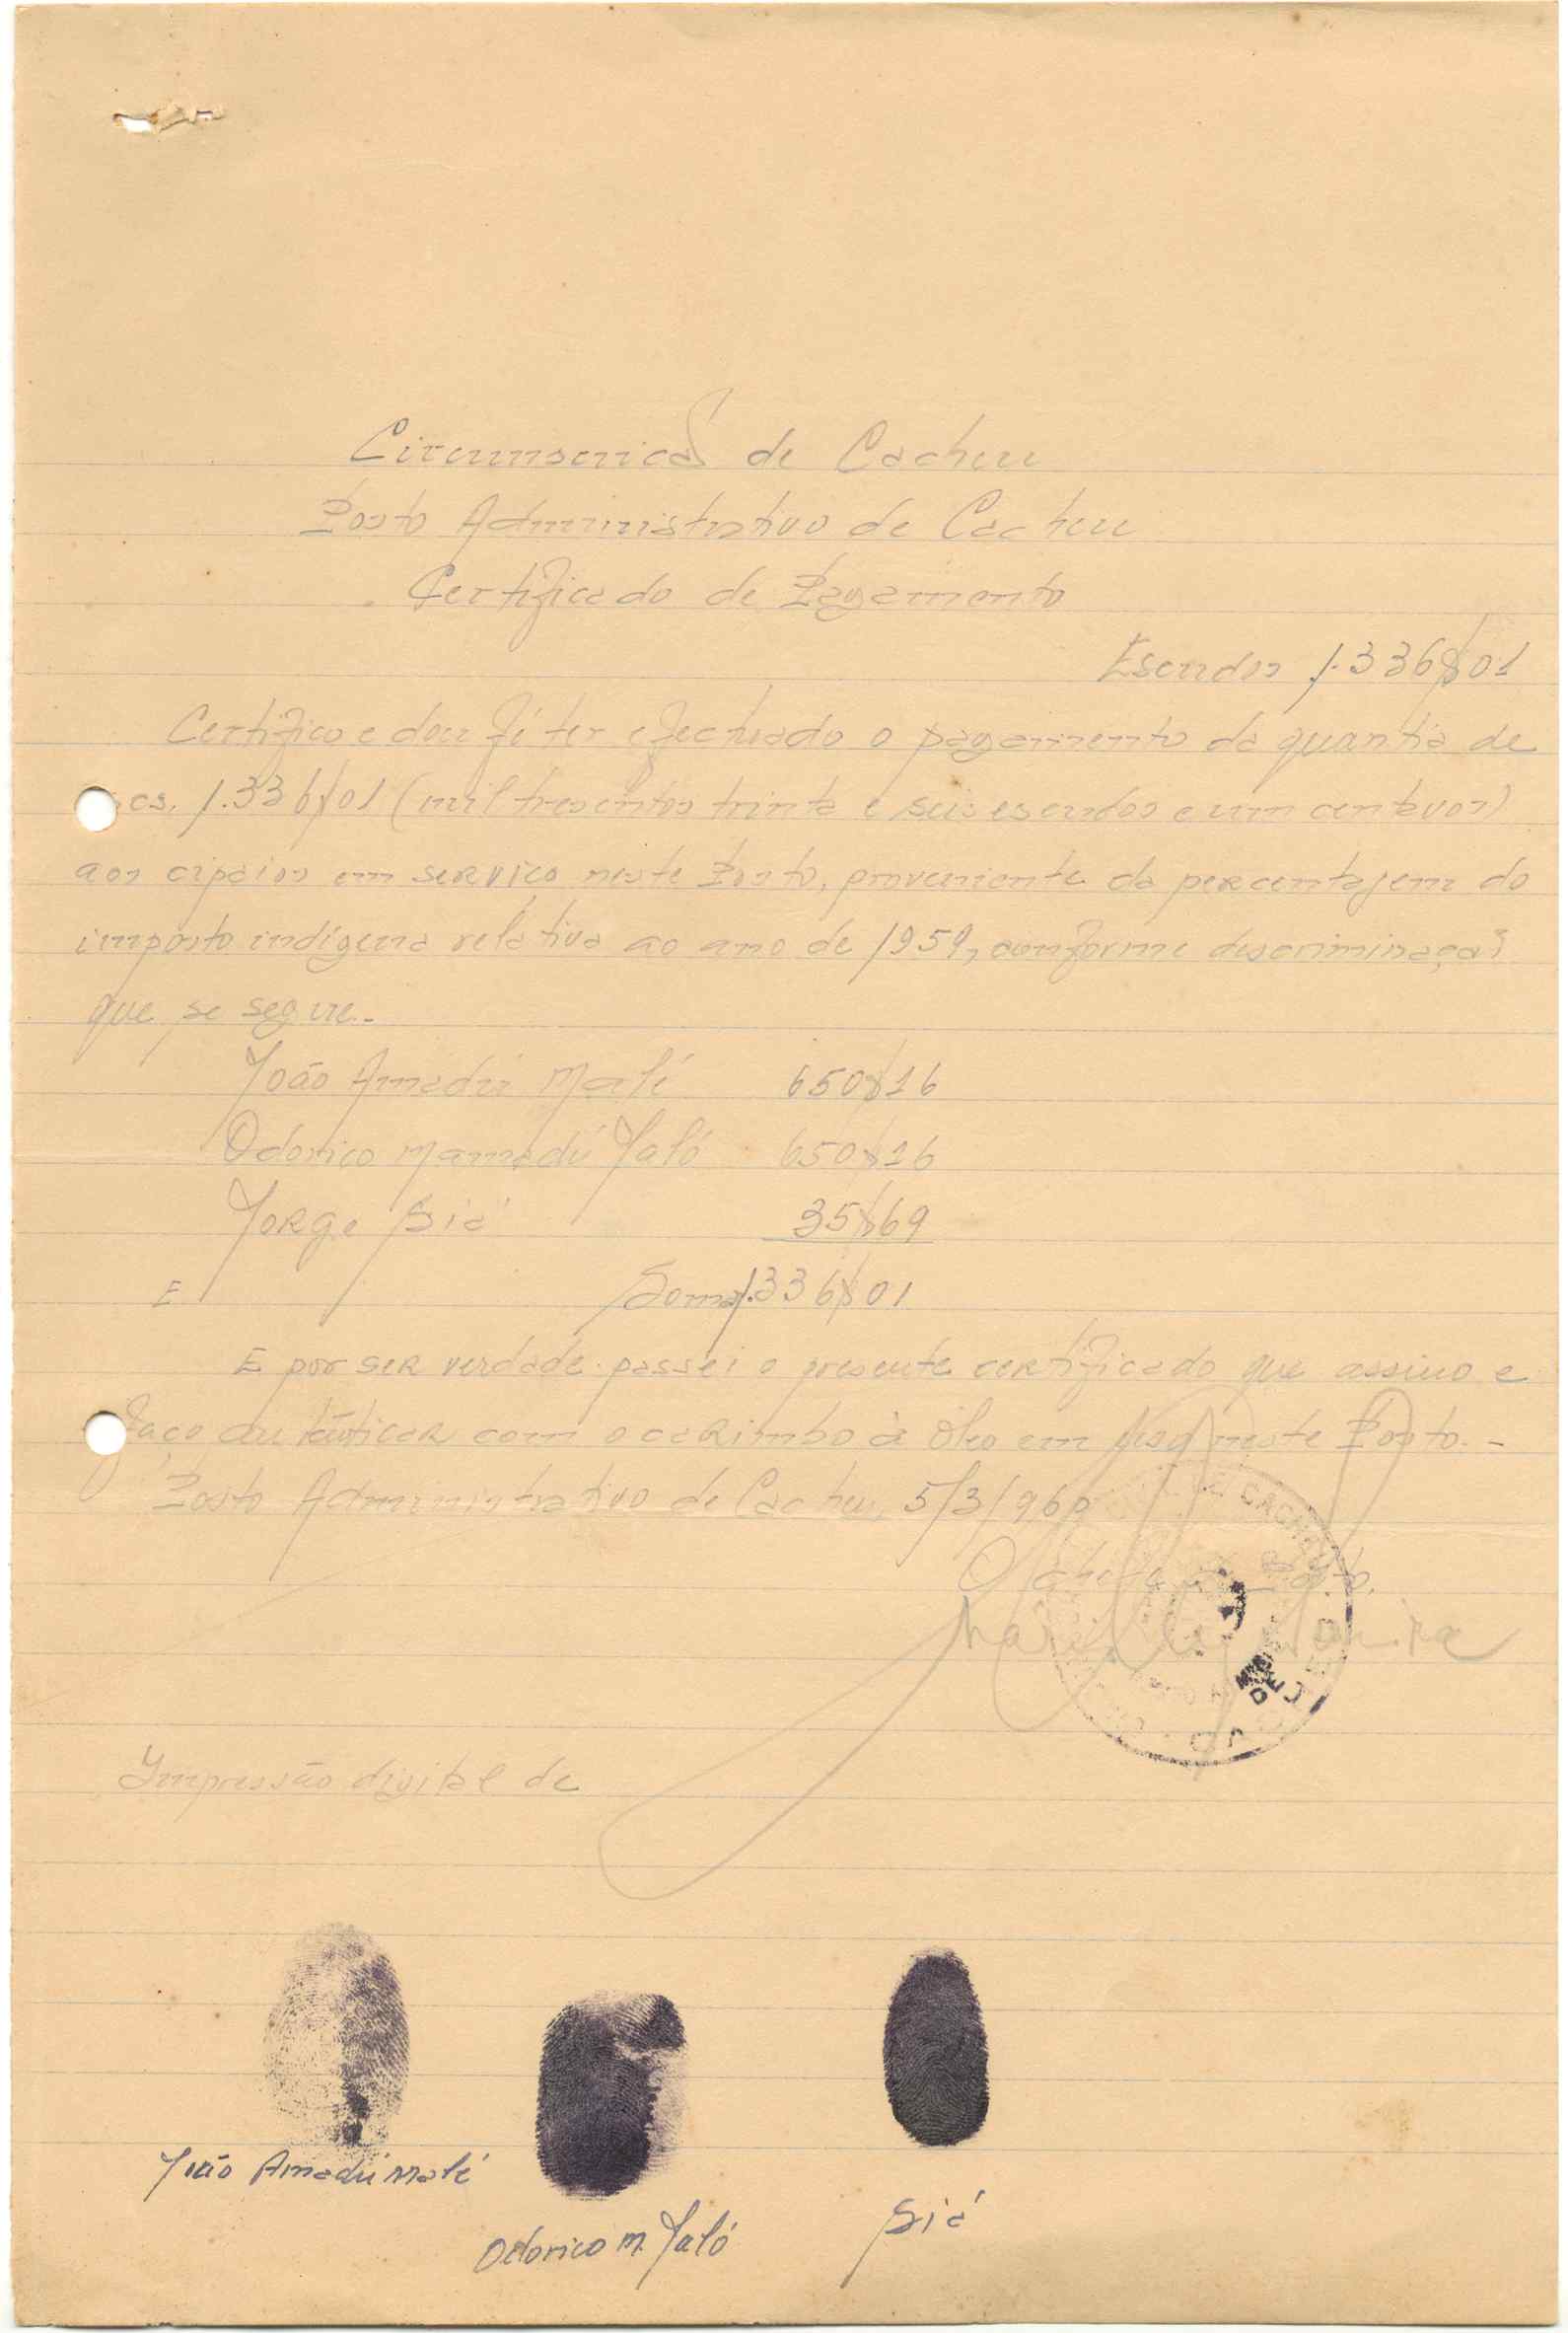 Circunscricaõ de Cacheu
Posto Administrativo de Cacheu
Certificado de Pagamento
Escudos 1.336$01
Certifico e dou fé ter efectuado o pagamento da quantia de
cs. 1.336$01 (mil tresentos trinta e seis escudos e um centavos)
aos cipaios em serviço neste Posto, proveniente da percentagem do
imposto indígena relativa ao ano de 1959, conforme discriminaçaõ
que se segue.-
João Amadú Malé 650$16
Odorico Mamadú Jaló 650$16
Jorge Siá 35$69
E Soma 1.336$01
E por ser verdade passei o presente certificado que assino e
faço autênticar com o carimbo à óleo em uso neste Posto.-
Posto Administrativo de Cacheu, 5/3/960
O chefe Posto,
CACHEU
Impressão digital de
João Amadú Malé
Odorico M. Jaló
Siá